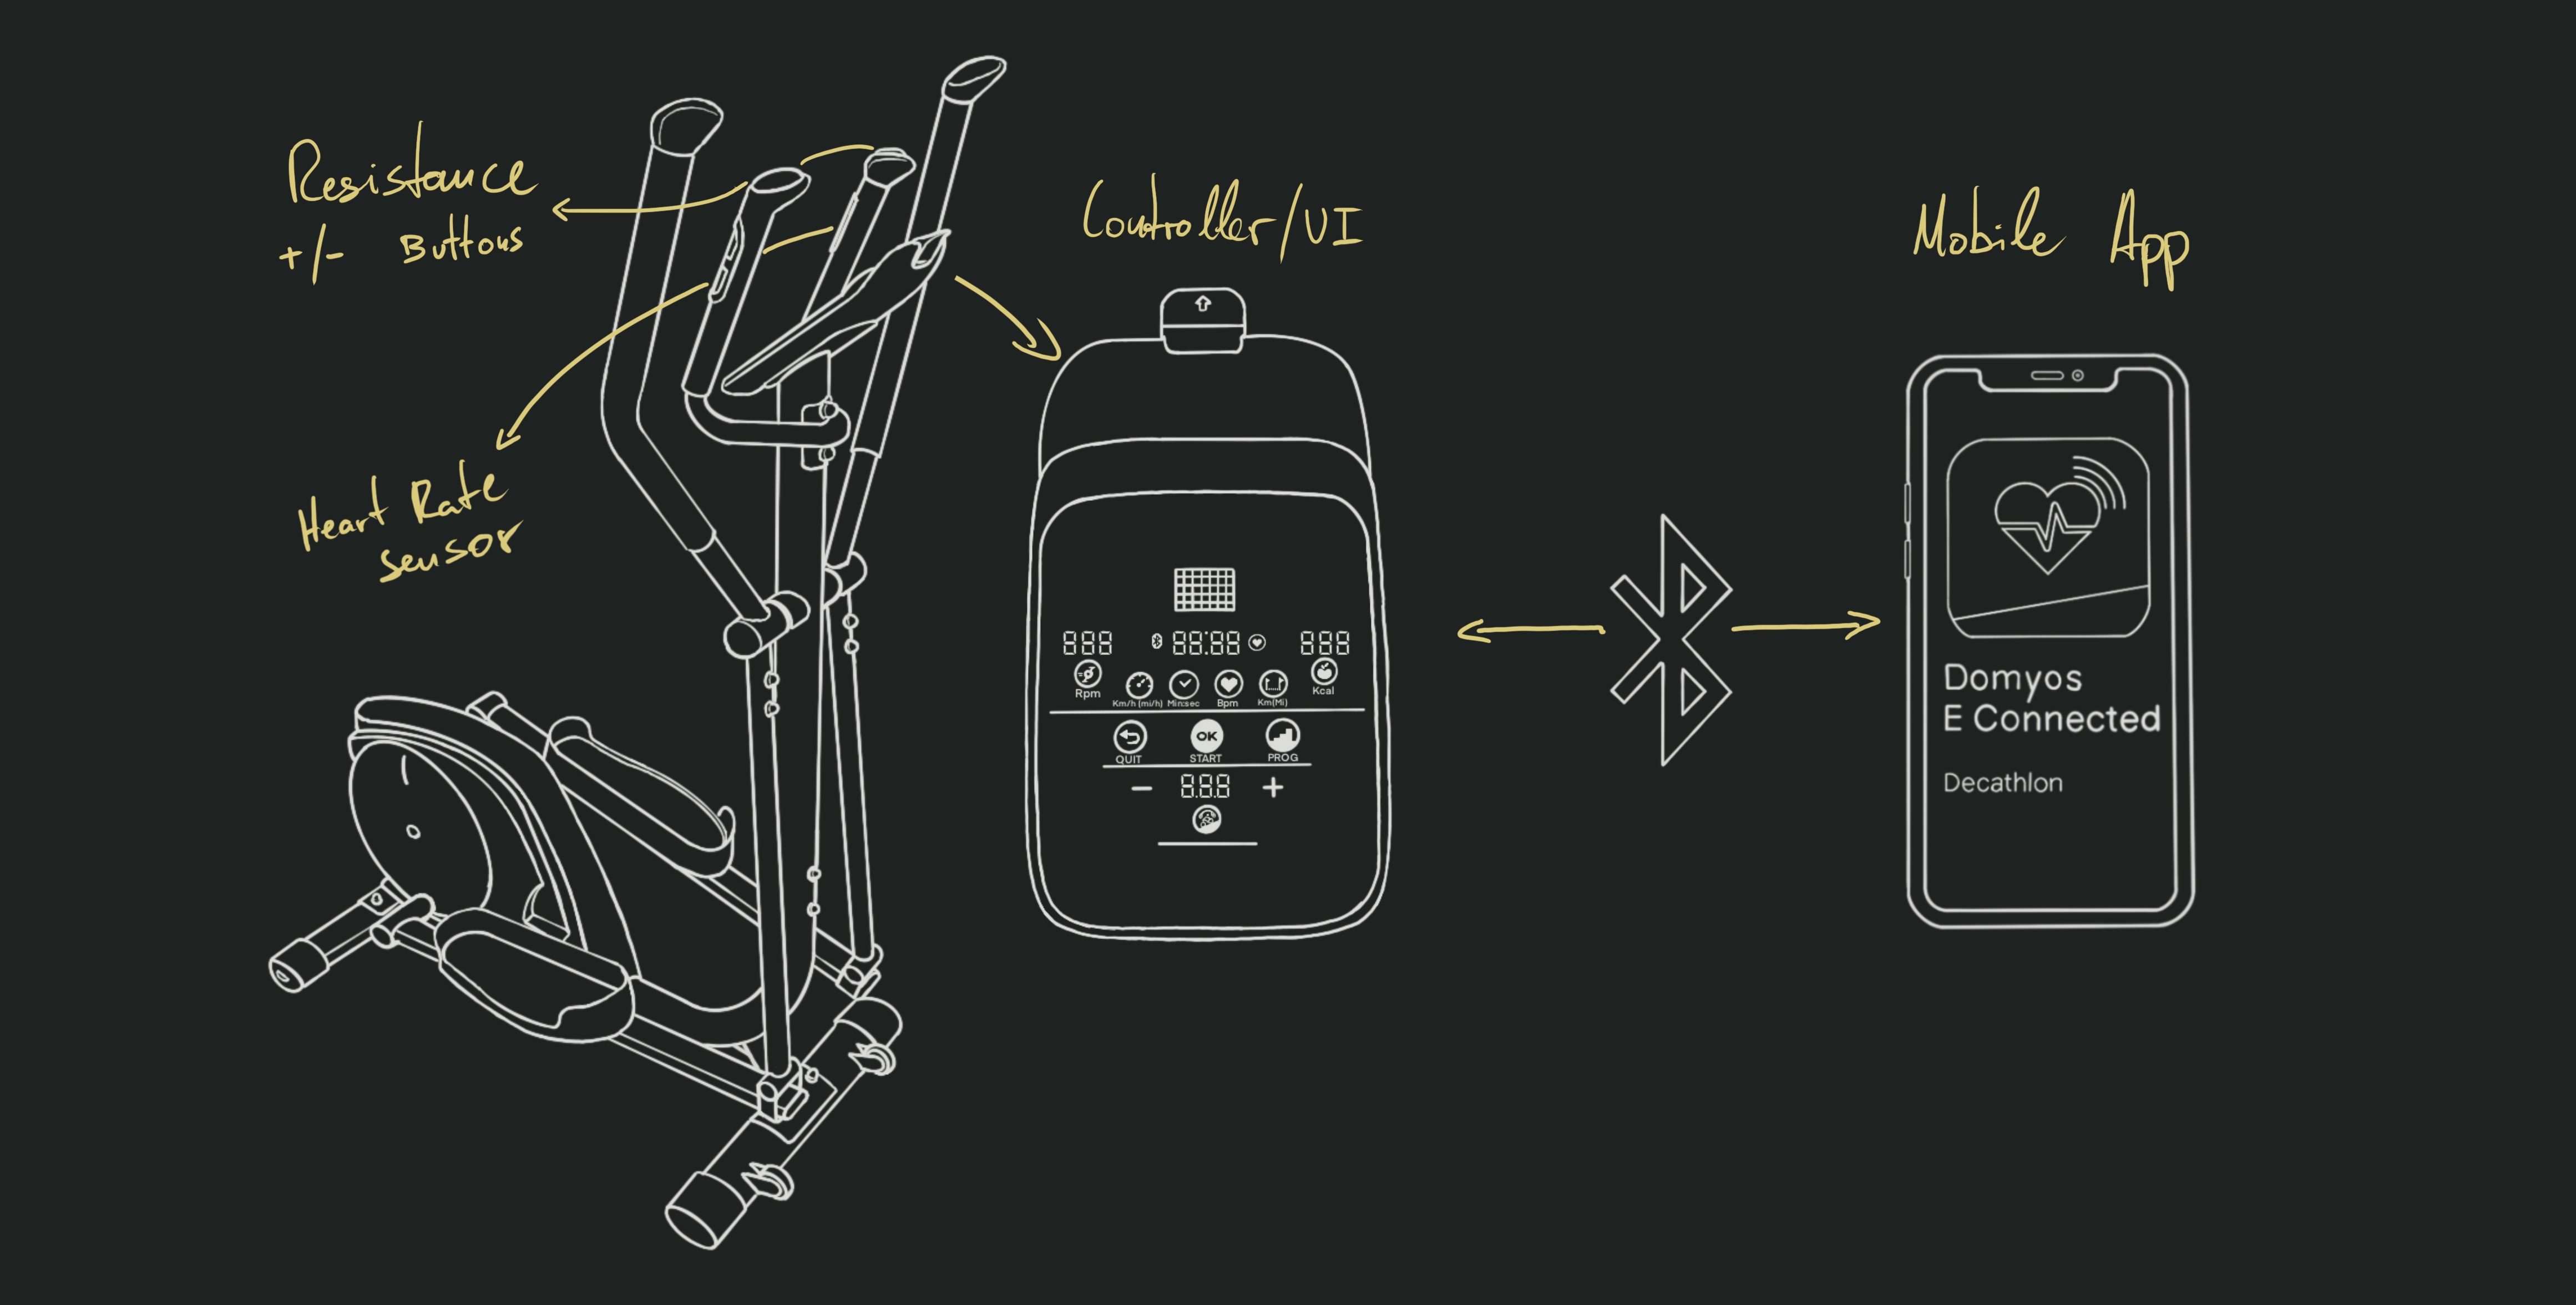 Resistance
+/- Buttons
Heart Rate
sensor
Controller/UI
888 88:88 888
Rpm Km/h (mi/h) Min:sec Bpm Km(Mi) Kcal
QUIT OK START PROG
− 8.8.8 +
Mobile App
Domyos
E Connected
Decathlon